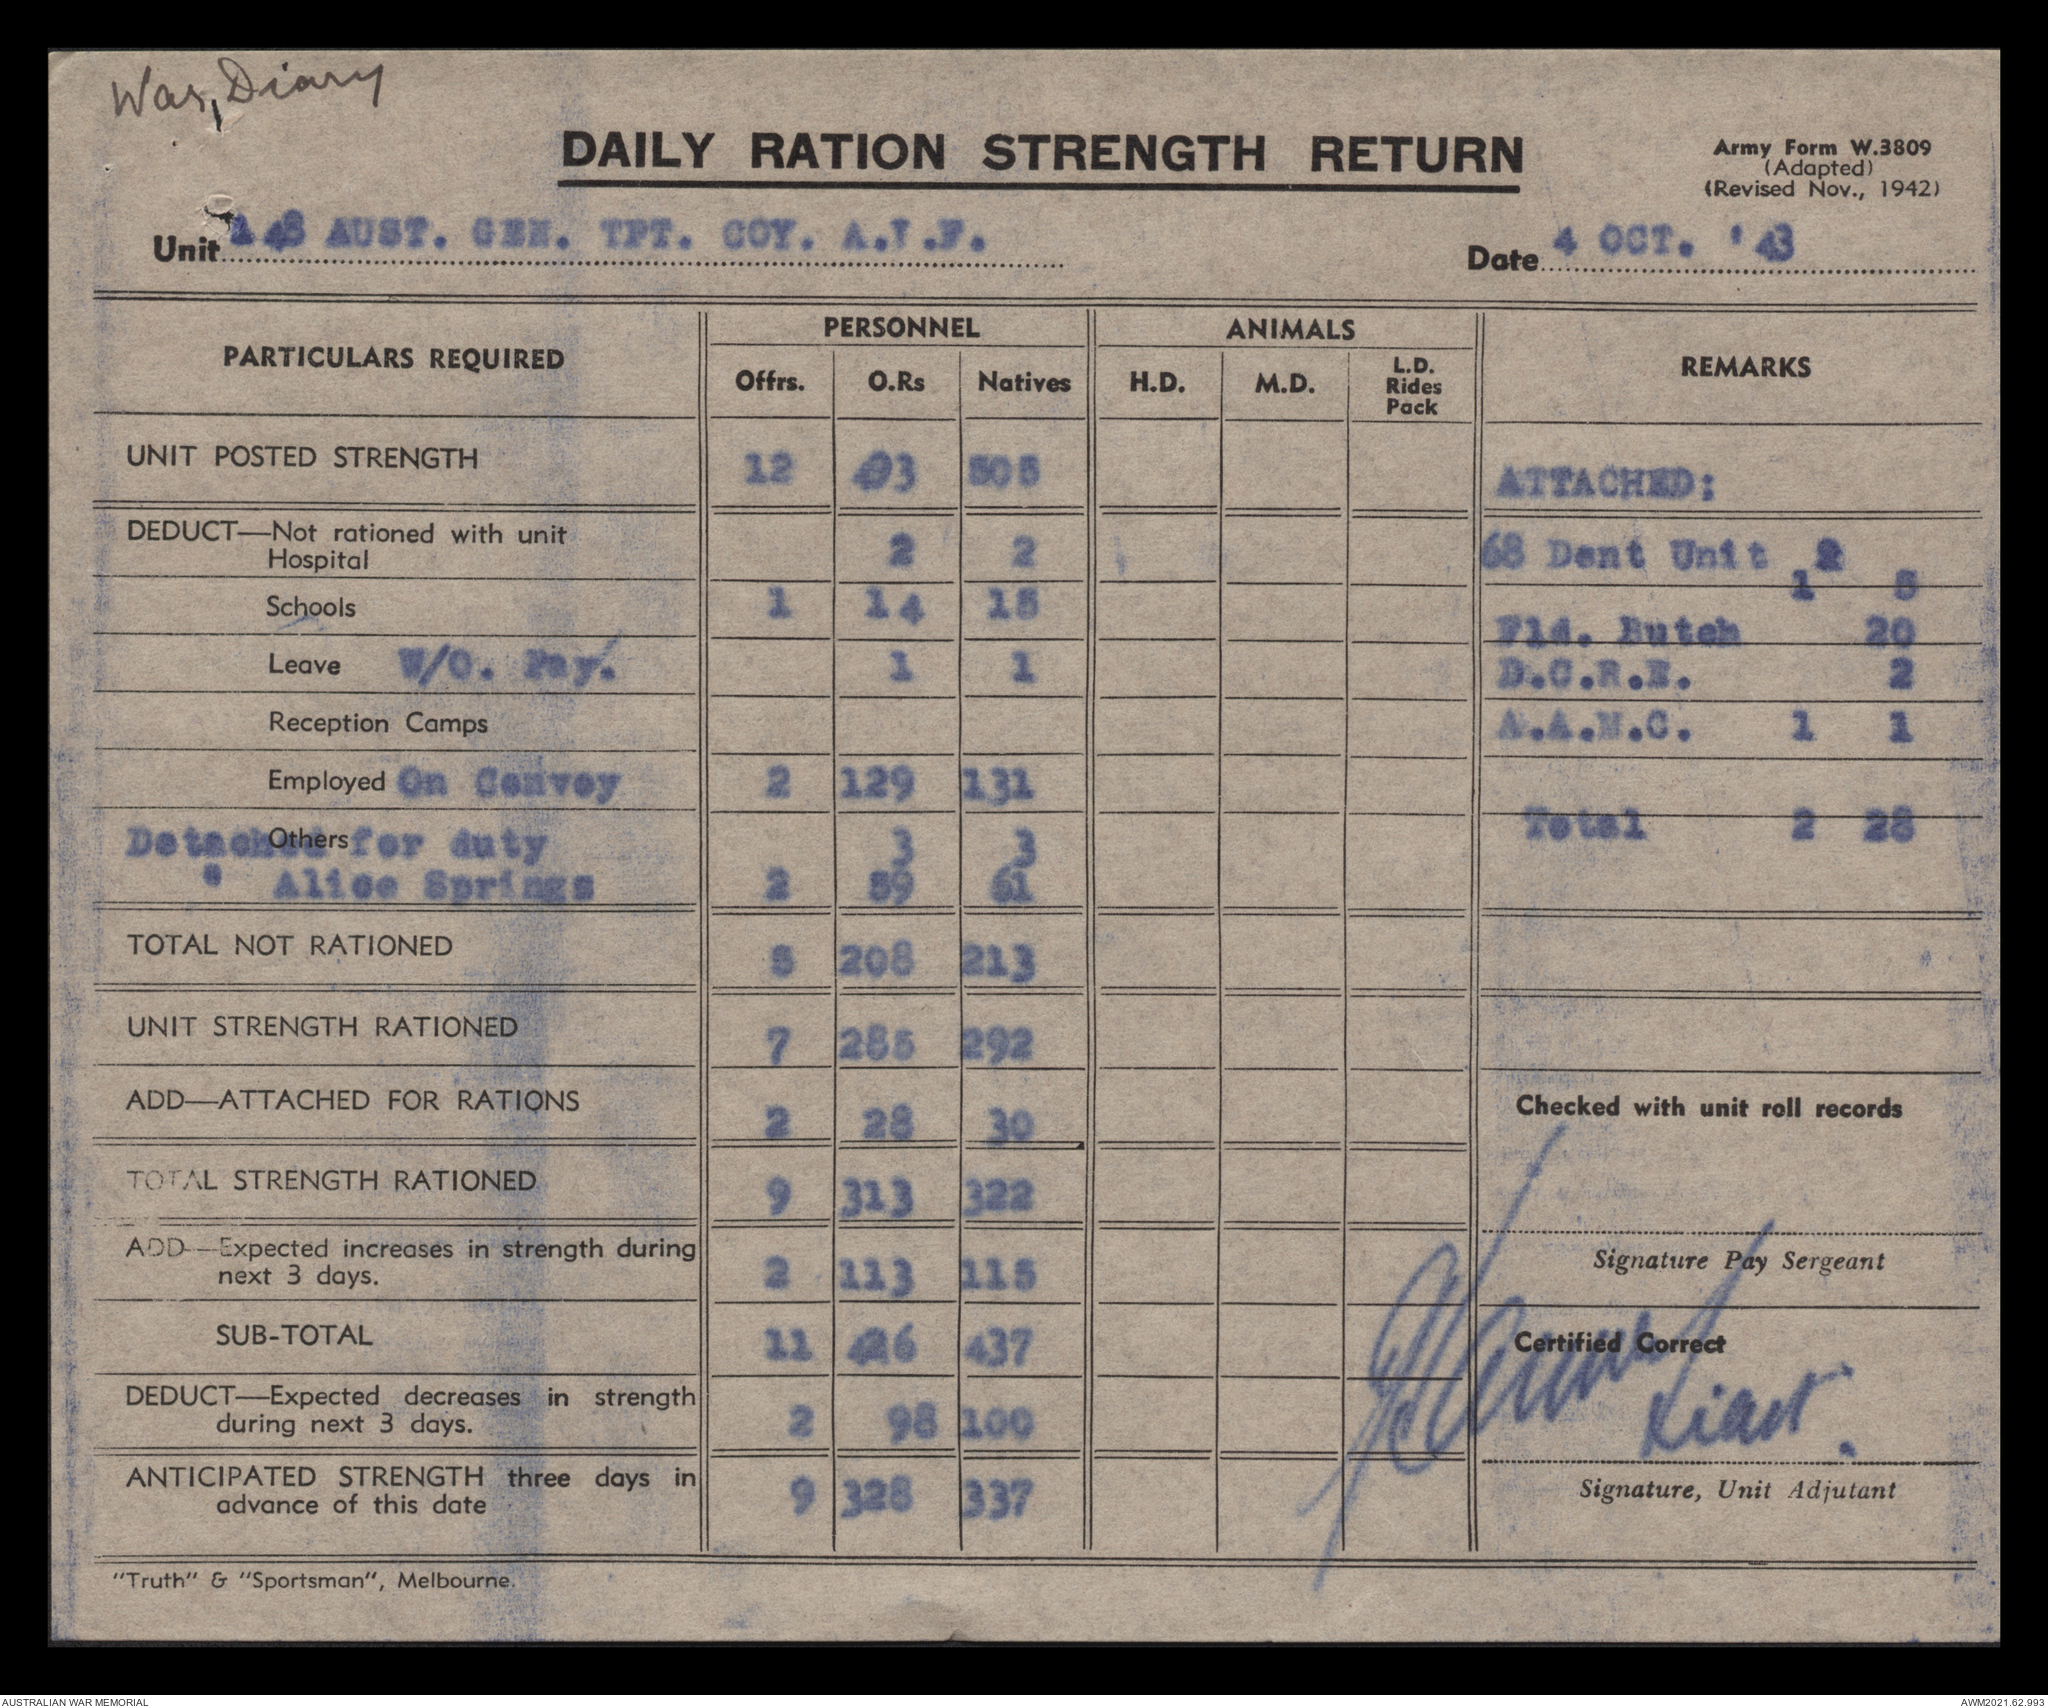 War Diary
DAILY RATION STRENGTH RETURN
Army Form W.3809
(Adapted)
(Revised Nov., 1942)
Unit 148 AUST. GEN. TPT. COY. A.I.F.
Date 4 OCT. '43
PARTICULARS REQUIRED
PERSONNEL
ANIMALS
REMARKS
Offrs. O.Rs Natives H.D. M.D. L.D. Rides Pack
UNIT POSTED STRENGTH 12 493 505
ATTACHED:
DEDUCT—Not rationed with unit
Hospital 2 2
68 Dent Unit
1 5
Schools 1 14 15
Fld. Butch 20
Leave W/O. Pay. 1 1
D.C.R.E. 2
Reception Camps
A.A.M.C. 1 1
Employed On Convoy 2 129 131
Total 2 28
Others Detached for duty 3 3
" Alice Springs 2 59 61
TOTAL NOT RATIONED 5 208 213
UNIT STRENGTH RATIONED 7 285 292
ADD—ATTACHED FOR RATIONS 2 28 30
Checked with unit roll records
TOTAL STRENGTH RATIONED 9 313 322
ADD—Expected increases in strength during
next 3 days. 2 113 115
Signature Pay Sergeant
SUB-TOTAL 11 426 437
Certified Correct
DEDUCT—Expected decreases in strength
during next 3 days. 2 98 100
Lieut.
ANTICIPATED STRENGTH three days in
advance of this date 9 328 337
Signature, Unit Adjutant
"Truth" & "Sportsman", Melbourne.
AUSTRALIAN WAR MEMORIAL
AWM2021.62.993